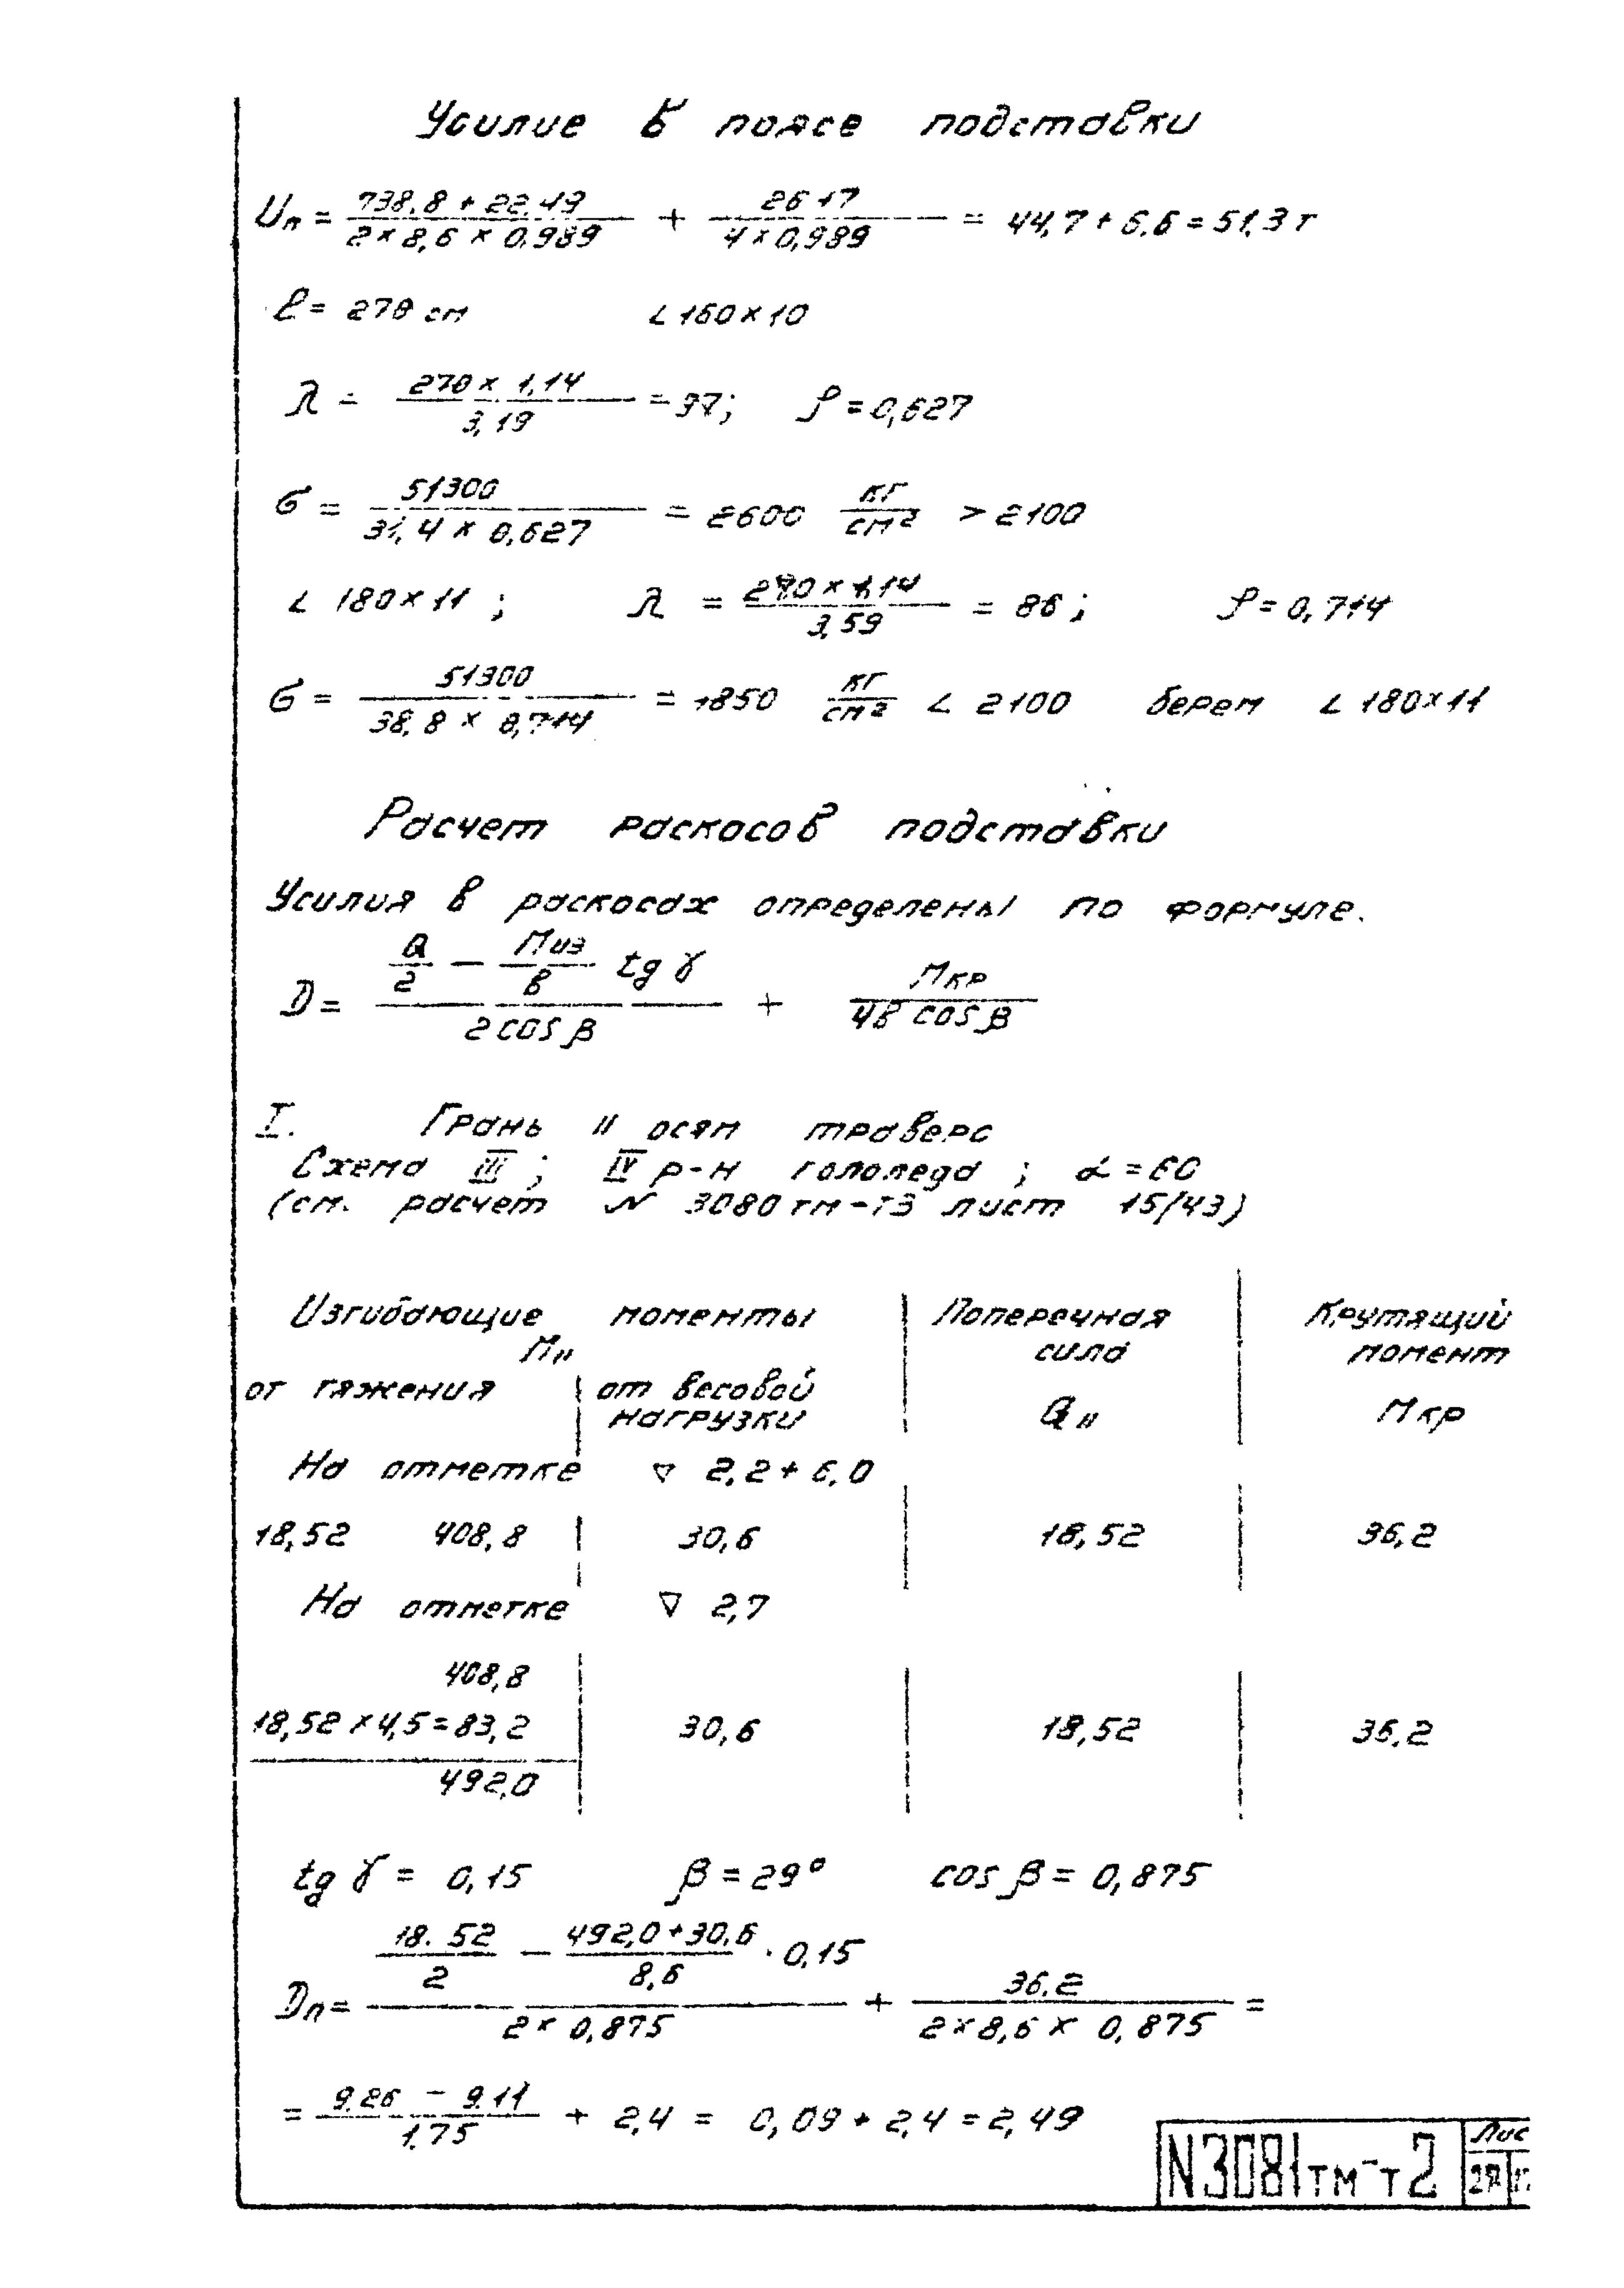 Усилие в поясе подставки
Uп = (738,8 + 22,19) / (2 × 8,6 × 0,989) + 26,17 / (4 × 0,989) = 44,7 + 6,6 = 51,3 т
ℓ = 270 см ∟160×10
λ = (270 × 1,14) / 3,19 = 97; φ = 0,627
σ = 51300 / (31,4 × 0,627) = 2600 кг/см² > 2100
∟180×11; λ = (270 × 1,14) / 3,59 = 86; φ = 0,714
σ = 51300 / (38,8 × 0,714) = 1850 кг/см² < 2100 берем ∟180×11
Расчет раскосов подставки
Усилия в раскосах определены по формуле.
D = (Q/2 − Mиз/в tg γ) / (2 cos β) + Mкр / (4в cos β)
I. Грань ॥ осям траверс
Схема III; IV р-н гололеда; α = 60
(см. расчет № 3080тм-т3 лист 15/43)
Изгибающие моменты | Поперечная | Крутящий
M॥ сила момент
от тяжения | от весовой
нагрузки Q॥ Mкр
На отметке ▽ 2,2 + 6,0
18,52 408,8 | 30,6 | 18,52 | 36,2
На отметке ▽ 2,7
408,8
18,52 × 4,5 = 83,2 | 30,6 | 18,52 | 36,2
492,0
tg γ = 0,15 β = 29° cos β = 0,875
Dп = (18,52/2 − (492,0 + 30,6)/8,6 · 0,15) / (2 × 0,875) + 36,2 / (2 × 8,6 × 0,875) =
= (9,26 − 9,11) / 1,75 + 2,4 = 0,09 + 2,4 = 2,49
N3081тм-т2
Лис